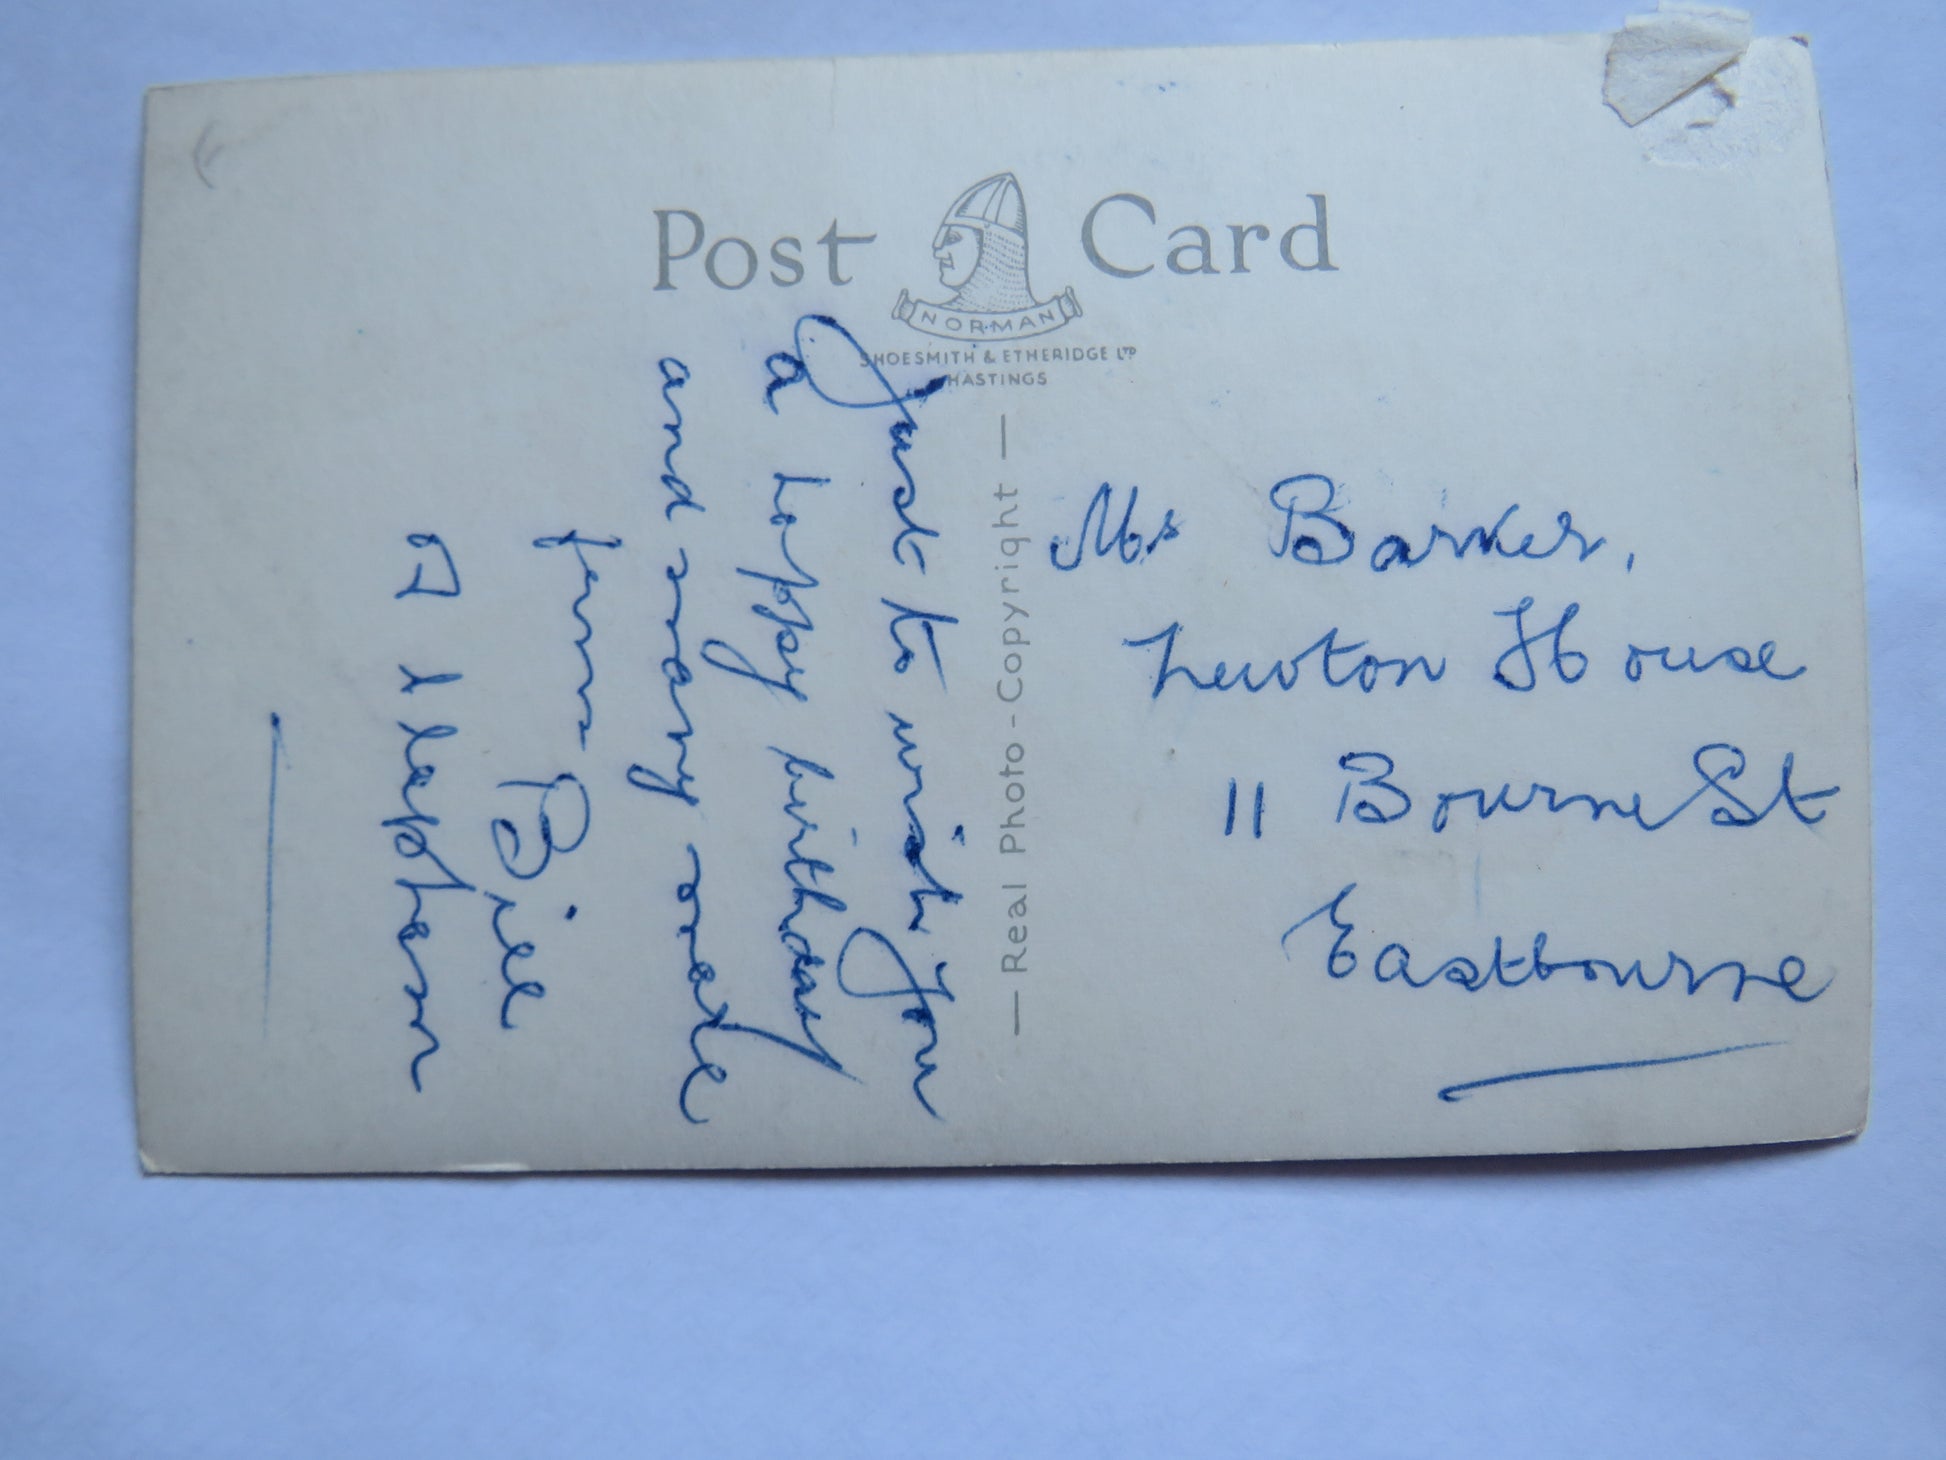 Post Card
NORMAN
SHOESMITH & ETHERIDGE LTD
HASTINGS
— Real Photo - Copyright —
Just to wish you
a happy birthday
and many more
from Bill
Mr Barker,
Newton House
11 Bourne St
Eastbourne